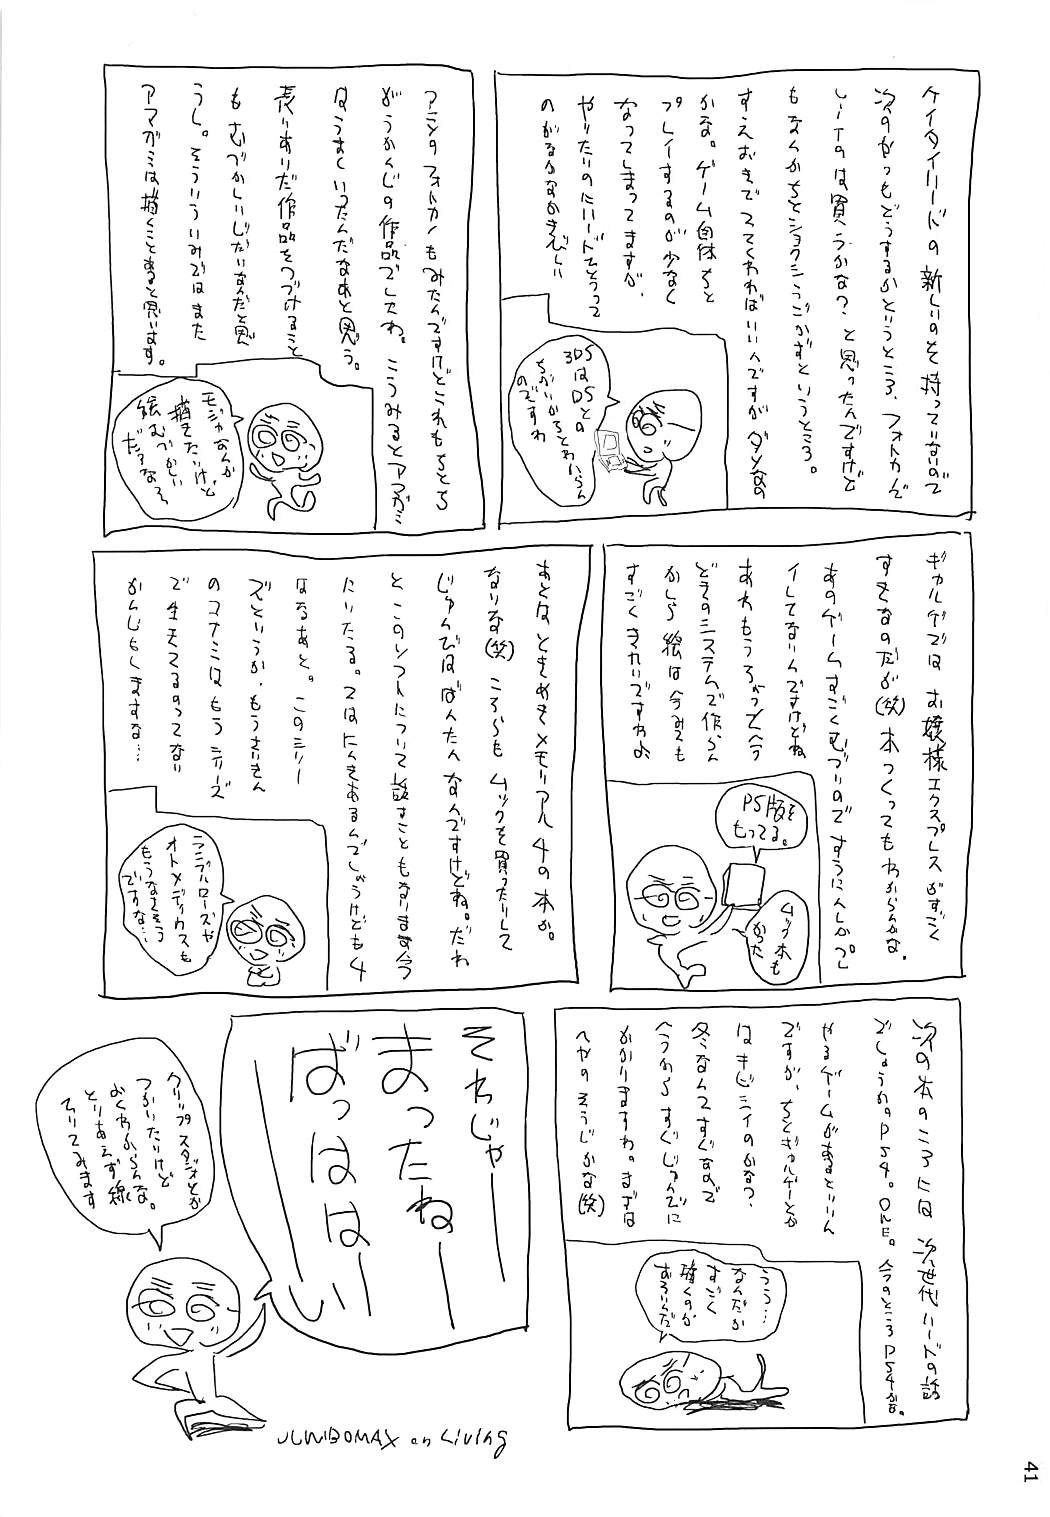 ケイタイハードの新しいのを持っていないので
次のがつもどうするかというところ、フォトカノ
しーTのは買うかな？と思ったんですけど
もなんかちとショクシうごかずというところ。
すえおきででてくれればいいんですがダメなの
かな。ゲーム自体ちと
プレイするのが少なく
なってしまってますが、
やりたいのにハードでとうって
のがなかなかきびしい
3DSは
DSとの
ちがいがちとわからん
のですわ
アニメのフォトカノもみたんですけどこれもちとち
がうかんじの作品でしたわ。こうみるとアマガミ
はうまくいったんだなあと思う。
表りありだ作品をつづけること
もむづかしいじだいなんだと思
うし。そういういみではまた
アマガミは描くことあると思います。
モジャなんか
描きたいけど
絵むづかしい
だろなろ
ギャルゲではお嬢様エクスプレスがすごく
すきなのだが(笑)本つくってもわからんかな。
あのゲームすごくむづいのですうにんしかプレ
イしてないんですけどね
あれもうろおってへう
どきのシステムで作らん
かしら 絵は今みても
すごくきれいですわよ
PS版を
もってる。
ムック本も
かった
あとはときめきメモリアル4の本か。
なりな(笑)ころらもムックを買ったりして
じゅんびはばんたんなんですけどね。だわ
とこのソフトについて話すこともなります今
にいたる。ではにんきあるんでしょうけども4
はなるあと。このシリー
ズというか、もうさいきん
のコナミはもうシリーズ
で生きてるのってない
かんじもしますな…
ランブルローズや
オトメディウスも
もうなさそう
ですな…
次の本のころには次世代ハードの話
でしょうか。PS4。ONE。今のところPS4かな。
やるゲームがあるといいん
ですが、ちとギャルゲーとか
はキビシイのかな？
冬なんてすぐなので
今うからすぐじゅんびに
かかりますわ。まずは
へやのそうじかな(笑)
うう…
なんだか
すごく
描くのが
おそいんだ
それじゃー
まったねー
ばっははーい
クリップスタジオとか
つかいたいけど
よくわからんな。
とりあえず線く
てりてみます
JUMBOMAX on Living
41